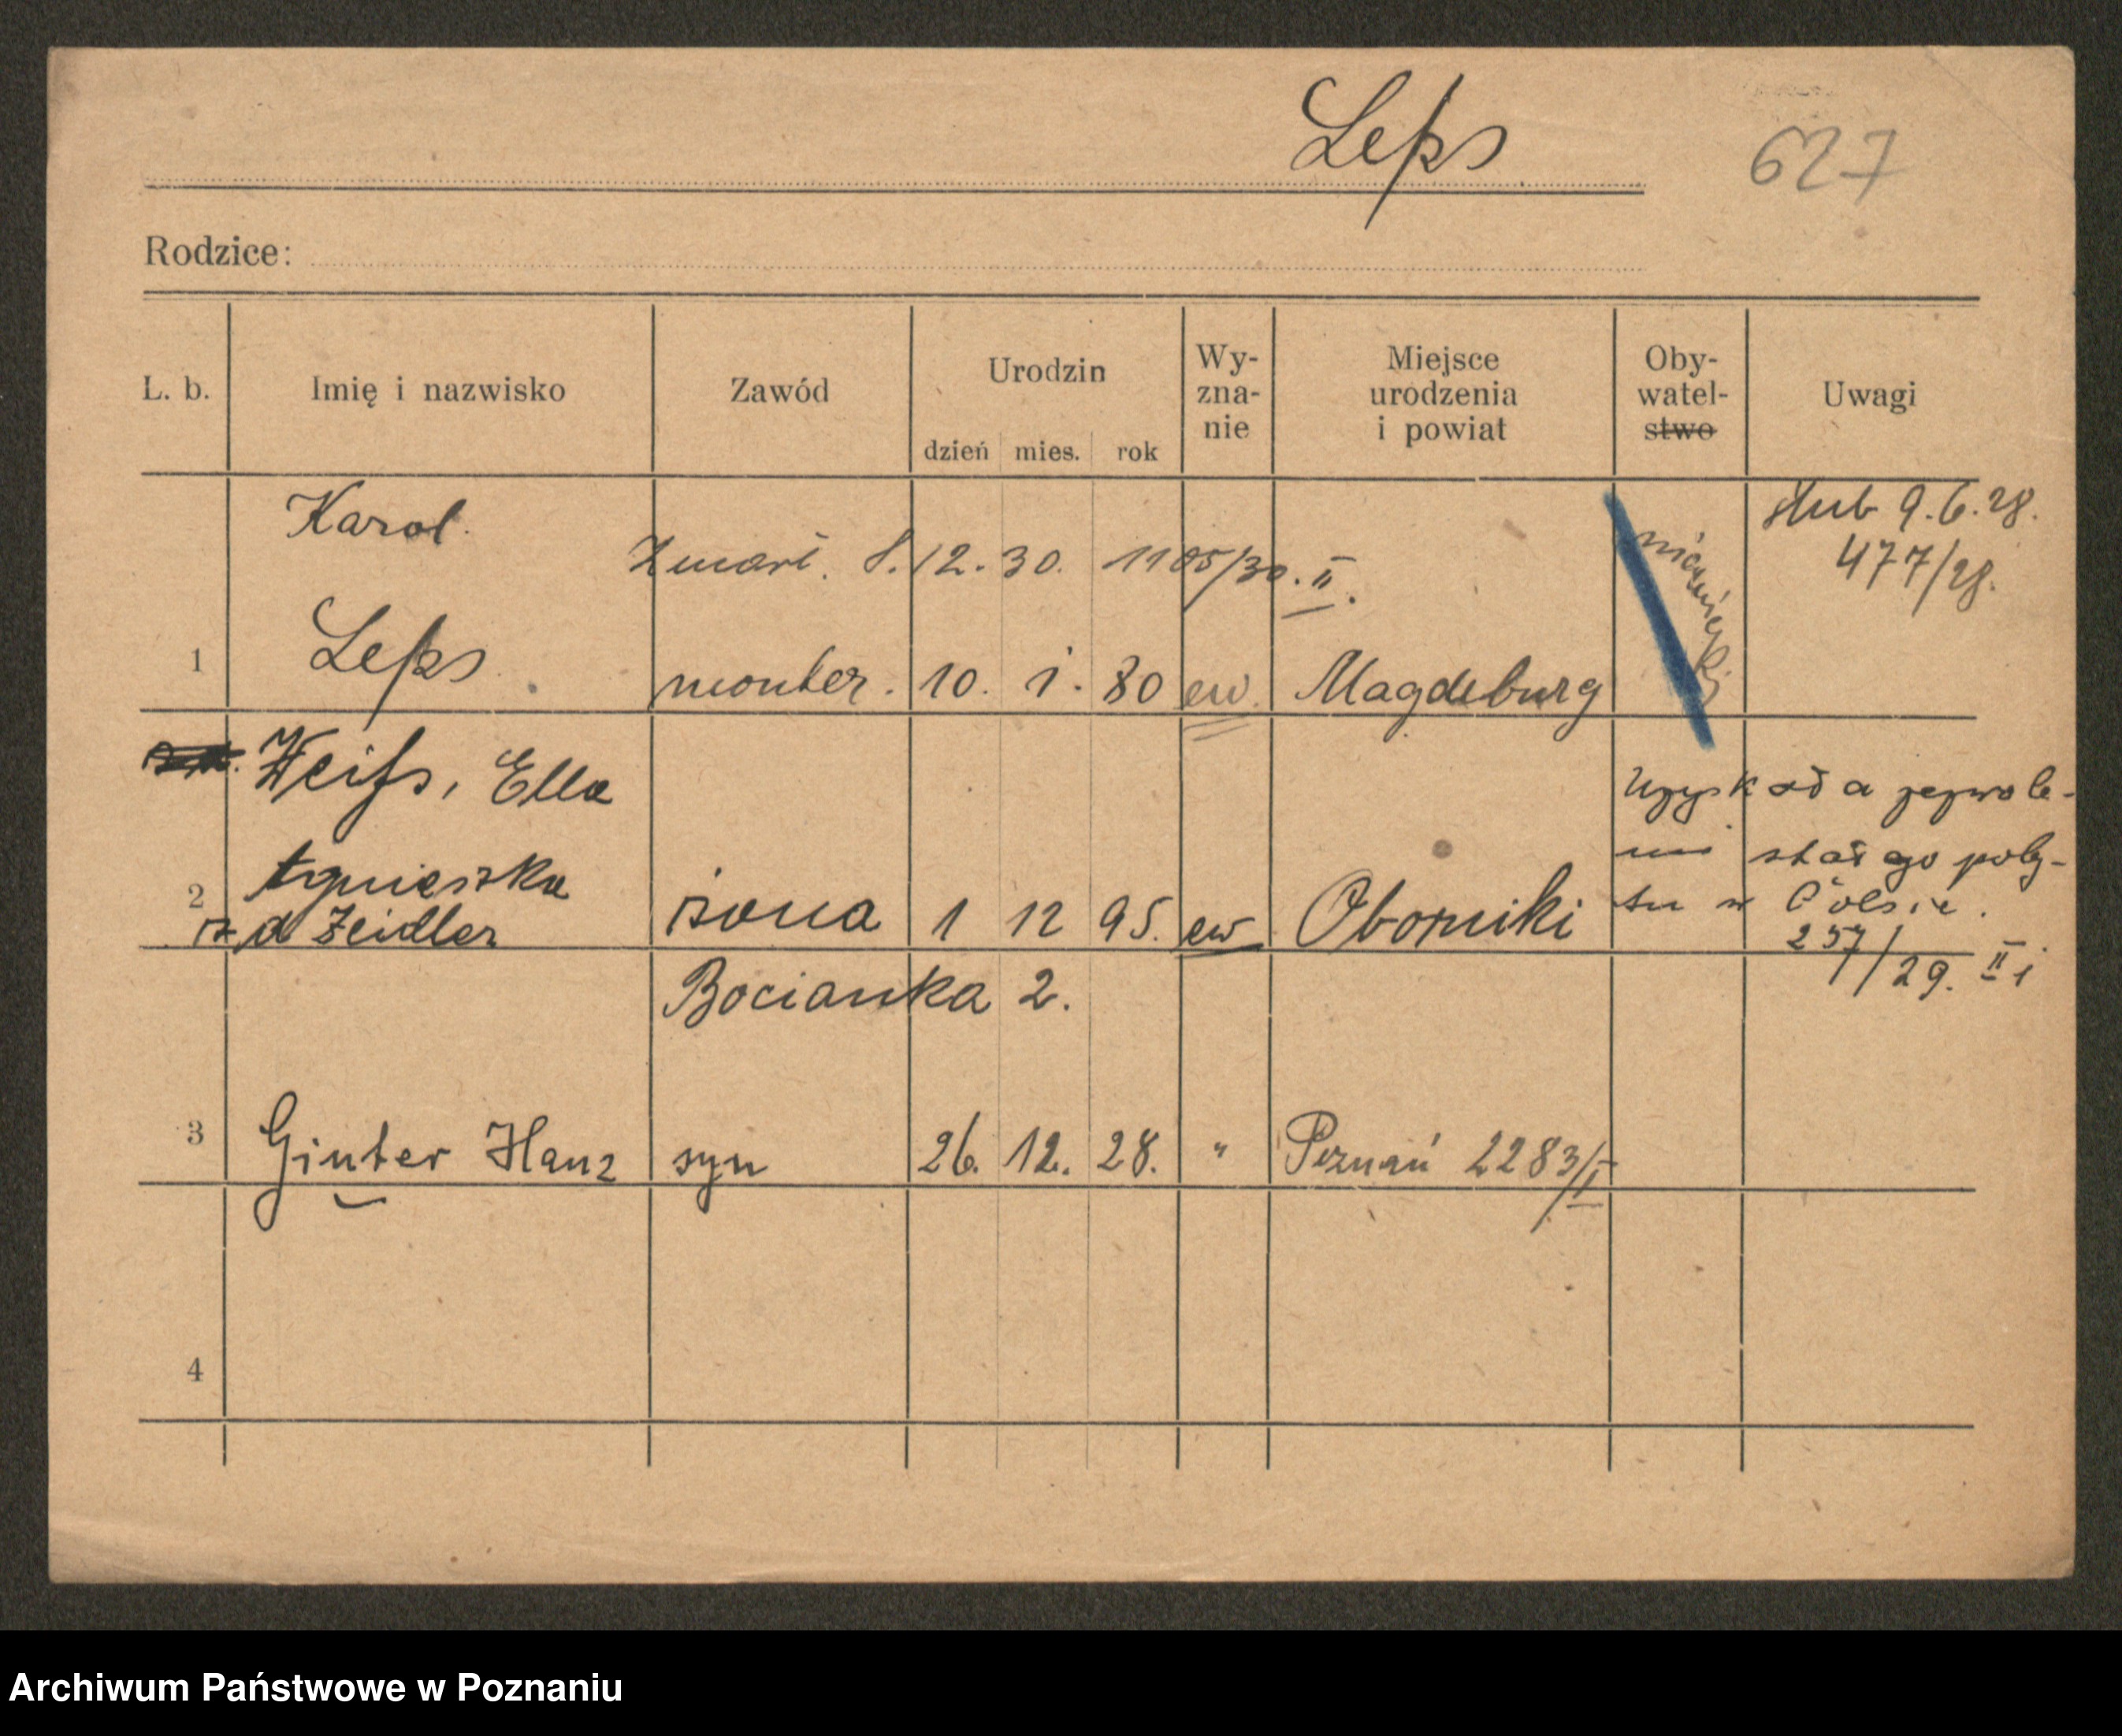 Leps
627
Rodzice:
L. b.
Imię i nazwisko
Zawód
Urodzin
dzień mies. rok
Wy-
zna-
nie
Miejsce
urodzenia
i powiat
Oby-
watel-
stwo
Uwagi
Karol
Zmarł. 8.12.30. 1105/30.II.
niemiecki
ślub 9.6.28.
477/28.
1 Leps monter. 10. i. 80 ew. Magdeburg
Weiſs, Ella
Uzyskała zezwole-
Agnieszka
nie stałego poby-
2 żona 1 12 95. ew Oborniki
tu w Polsce.
z d Zeidler
257/29. II i
Bocianka 2.
3 Ginter Hanz syn 26. 12. 28. " Poznań 2283/I
4
Archiwum Państwowe w Poznaniu